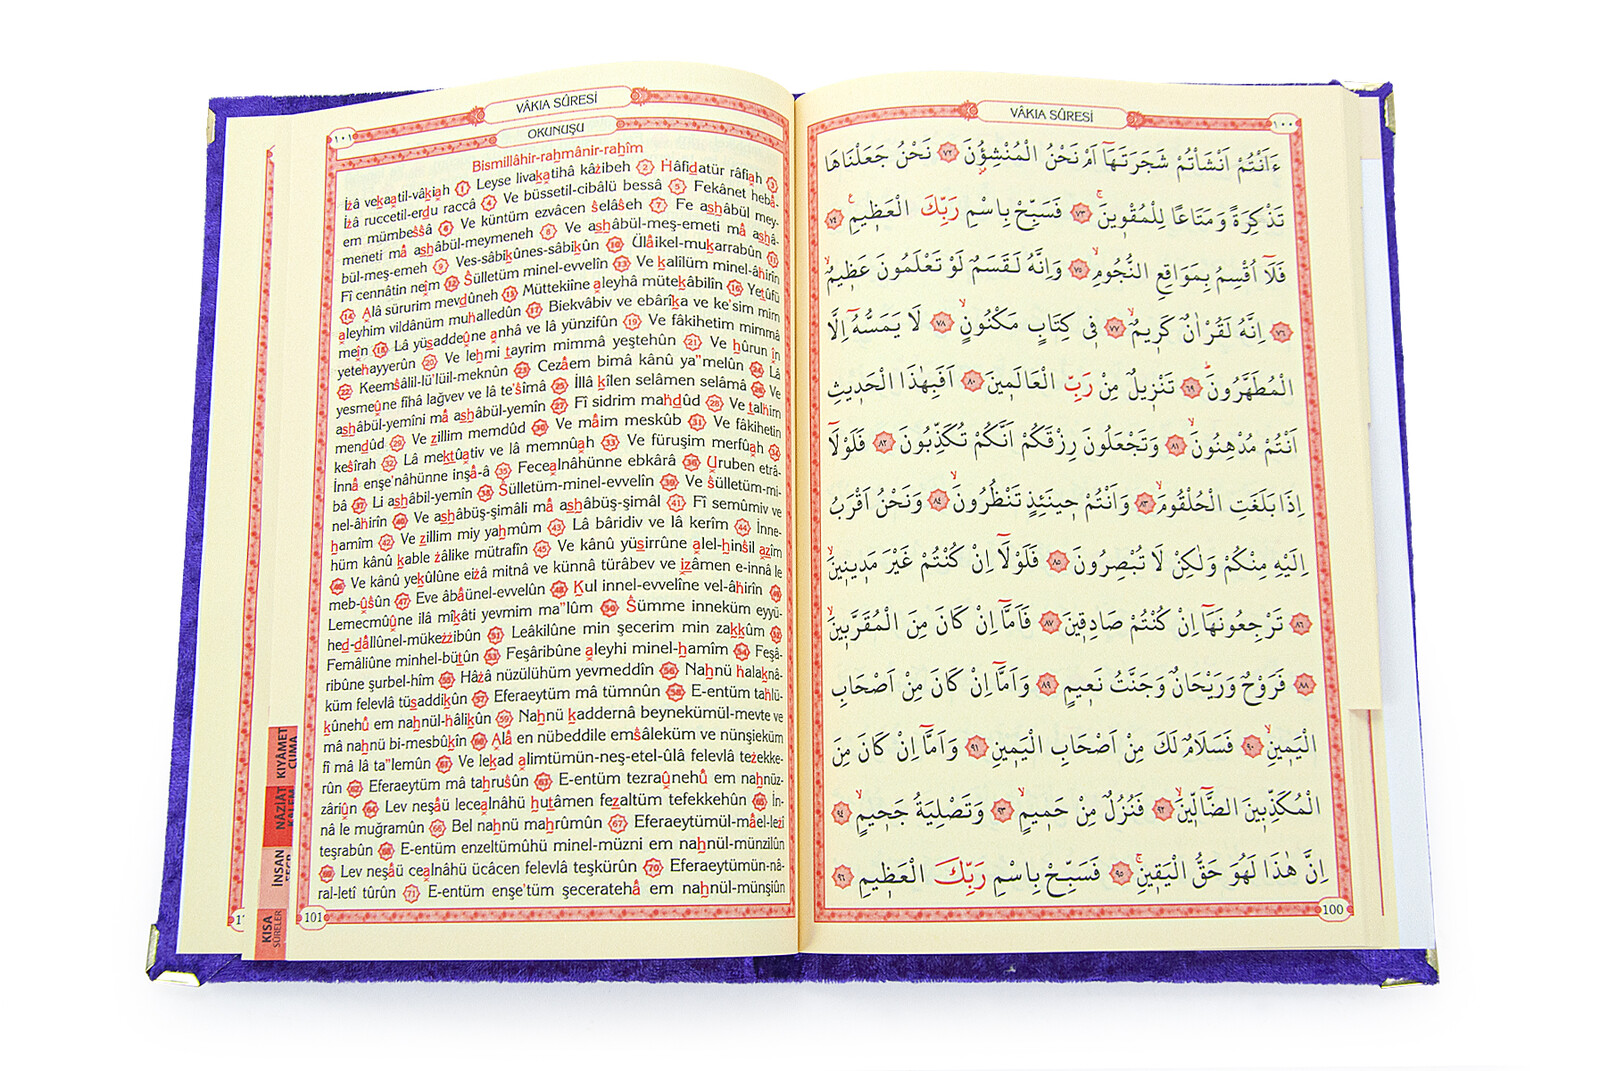 VÂKIA SÛRESİ
١٠٠
ءَاَنْتُمْ اَنْشَأْتُمْ شَجَرَتَهَٓا اَمْ نَحْنُ الْمُنْشِؤُ۫نَ ٧٢ نَحْنُ جَعَلْنَاهَا
تَذْكِرَةً وَمَتَاعًا لِلْمُقْوِينَۚ ٧٣ فَسَبِّحْ بِاسْمِ رَبِّكَ الْعَظِيمِ۟ ٧٤
فَلَٓا اُقْسِمُ بِمَوَاقِعِ النُّجُومِۙ ٧٥ وَاِنَّهُ لَقَسَمٌ لَوْ تَعْلَمُونَ عَظِيمٌۙ
٧٦ اِنَّهُ لَقُرْاٰنٌ كَرِيمٌۙ ٧٧ فِي كِتَابٍ مَكْنُونٍۙ ٧٨ لَا يَمَسُّهُٓ اِلَّا
الْمُطَهَّرُونَۜ ٧٩ تَنْزِيلٌ مِنْ رَبِّ الْعَالَمِينَ ٨٠ اَفَبِهٰذَا الْحَدِيثِ
اَنْتُمْ مُدْهِنُونَۙ ٨١ وَتَجْعَلُونَ رِزْقَكُمْ اَنَّكُمْ تُكَذِّبُونَ ٨٢ فَلَوْلَٓا
اِذَا بَلَغَتِ الْحُلْقُومَۙ ٨٣ وَاَنْتُمْ حِينَئِذٍ تَنْظُرُونَۙ ٨٤ وَنَحْنُ اَقْرَبُ
اِلَيْهِ مِنْكُمْ وَلٰكِنْ لَا تُبْصِرُونَ ٨٥ فَلَوْلَٓا اِنْ كُنْتُمْ غَيْرَ مَدِينِينَۙ
٨٦ تَرْجِعُونَهَٓا اِنْ كُنْتُمْ صَادِقِينَ ٨٧ فَاَمَّٓا اِنْ كَانَ مِنَ الْمُقَرَّبِينَۙ
٨٨ فَرَوْحٌ وَرَيْحَانٌ وَجَنَّتُ نَعِيمٍ ٨٩ وَاَمَّٓا اِنْ كَانَ مِنْ اَصْحَابِ
الْيَمِينِۙ ٩٠ فَسَلَامٌ لَكَ مِنْ اَصْحَابِ الْيَمِينِۜ ٩١ وَاَمَّٓا اِنْ كَانَ مِنَ
الْمُكَذِّبِينَ الضَّٓالِّينَۙ ٩٢ فَنُزُلٌ مِنْ حَمِيمٍۙ ٩٣ وَتَصْلِيَةُ جَحِيمٍۙ ٩٤
اِنَّ هٰذَا لَهُوَ حَقُّ الْيَقِينِۚ ٩٥ فَسَبِّحْ بِاسْمِ رَبِّكَ الْعَظِيمِ ٩٦
100
VÂKIA SÛRESİ
١٠١
OKUNUŞU
Bismillâhir-rahmânir-rahîm
İzâ vekaatil-vâkiah 1 Leyse livakatihâ kâzibeh 2 Hâfidatür râfiah 3
İzâ ruccetil-erdu raccâ 4 Ve büssetil-cibâlü bessâ 5 Fekânet hebâ-
em mümbessâ 6 Ve küntüm ezvâcen selâseh 7 Fe ashâbül mey-
meneti mâ ashâbül-meymeneh 8 Ve ashâbül-meş-emeti mâ ashâ-
bül-meş-emeh 9 Ves-sâbikûnes-sâbikûn 10 Ülâikel-mukarrabûn 11
Fî cennâtin neîm 12 Sülletüm minel-evvelîn 13 Ve kalîlüm minel-âhirîn
14 Alâ sürurim mevdûneh 15 Müttekiîne aleyhâ mütekâbilîn 16 Yetûfü
aleyhim vildânüm muhalledûn 17 Biekvâbiv ve ebârîka ve ke'sim mim
meîn 18 Lâ yüsaddeûne anhâ ve lâ yünzifûn 19 Ve fâkihetim mimmâ
yetehayyerûn 20 Ve lehmi tayrim mimmâ yeştehûn 21 Ve hûrun în
22 Keemsâlil-lü'lüil-meknûn 23 Cezâem bimâ kânû ya"melûn 24 Lâ
yesmeûne fîhâ lağvev ve lâ te'sîmâ 25 İllâ kîlen selâmen selâmâ 26 Ve
ashâbül-yemîni mâ ashâbül-yemîn 27 Fî sidrim mahdûd 28 Ve talhim
mendûd 29 Ve zillim memdûd 30 Ve mâim meskûb 31 Ve fâkihetin
kesîrah 32 Lâ mektûativ ve lâ memnûah 33 Ve füruşim merfûah 34
İnnâ enşe'nâhünne inşâ-â 35 Fecealnâhünne ebkârâ 36 Uruben etrâ-
bâ 37 Li ashâbil-yemîn 38 Sülletüm-minel-evvelîn 39 Ve sülletüm-mi-
nel-âhirîn 40 Ve ashâbüş-şimâli mâ ashâbüş-şimâl 41 Fî semûmiv ve
hamîm 42 Ve zillim miy yahmûm 43 Lâ bâridiv ve lâ kerîm 44 İnne-
hüm kânû kable zâlike mütrafîn 45 Ve kânû yüsirrûne alel-hinsil azîm
46 Ve kânû yekûlûne eizâ mitnâ ve künnâ türâbev ve izâmen e-innâ le
meb-ûsûn 47 Eve âbâünel-evvelûn 48 Kul innel-evvelîne vel-âhirîn 49
Lemecmûûne ilâ mîkâti yevmim ma"lûm 50 Sümme inneküm eyyü-
hed-dâllûnel-mükezzibûn 51 Leâkilûne min şecerim min zakkûm 52
Femâliûne minhel-bütûn 53 Feşâribûne aleyhi minel-hamîm 54 Feşâ-
ribûne şurbel-hîm 55 Hâzâ nüzülühüm yevmeddîn 56 Nahnü halaknâ-
küm felevlâ tüsaddikûn 57 Eferaeytüm mâ tümnûn 58 E-entüm tahlü-
kûnehû em nahnül-hâlikûn 59 Nahnü kaddernâ beynekümül-mevte ve
mâ nahnü bi-mesbûkîn 60 Alâ en nübeddile emsâleküm ve nünşieküm
fî mâ lâ ta"lemûn 61 Ve lekad alimtümün-neş-etel-ûlâ felevlâ tezekke-
rûn 62 Eferaeytüm mâ tahrusûn 63 E-entüm tezraûnehû em nahnüz-
zâriûn 64 Lev neşâü lecealnâhü hutâmen fezaltüm tefekkehûn 65 İn-
nâ le muğramûn 66 Bel nahnü mahrûmûn 67 Eferaeytümül-mâel-lezî
teşrabûn 68 E-entüm enzeltümûhü minel-müzni em nahnül-münzilûn
69 Lev neşâü cealnâhü ücâcen felevlâ teşkürûn 70 Eferaeytümün-nâ-
ral-letî tûrûn 71 E-entüm enşe'tüm şeceratehâ em nahnül-münşiûn
101
KIYÂMET
CUMA
NÂZİÂT
KALEM
İNSAN
KISA
SÛRELER